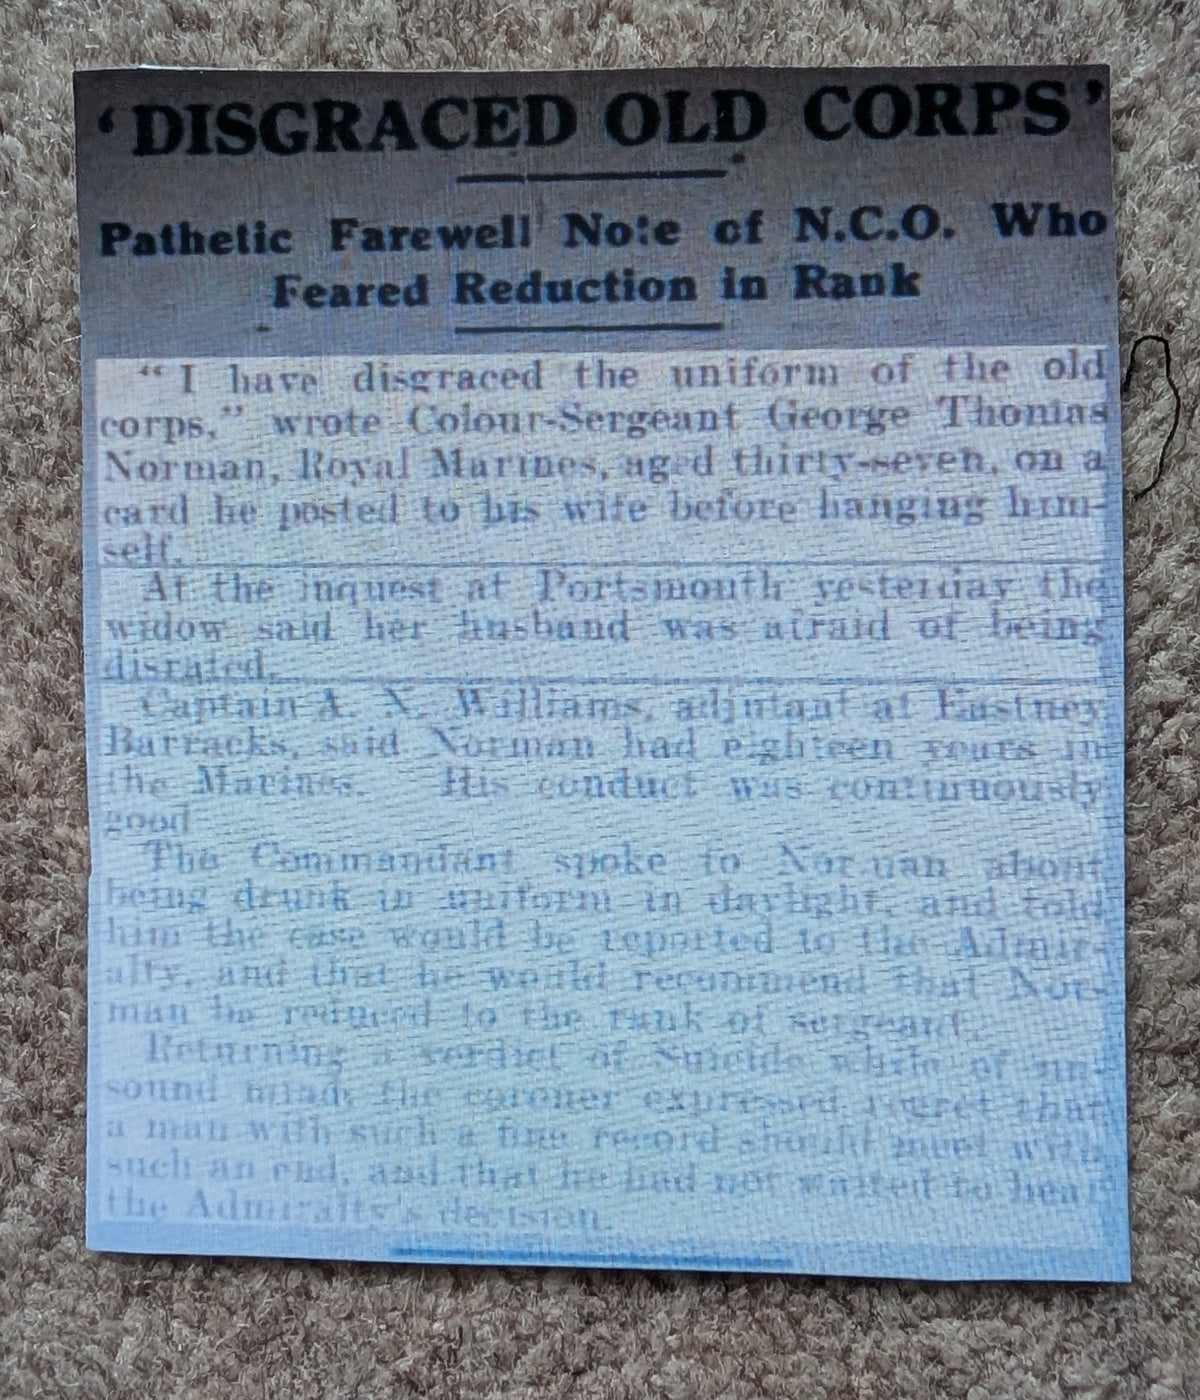 ‘DISGRACED OLD CORPS’
Pathetic Farewell Note of N.C.O. Who
Feared Reduction in Rank
“I have disgraced the uniform of the old
corps,” wrote Colour-Sergeant George Thomas
Norman, Royal Marines, aged thirty-seven, on a
card he posted to his wife before hanging him-
self.
At the inquest at Portsmouth yesterday the
widow said her husband was afraid of being
disrated.
Captain A. N. Williams, adjutant at Eastney
Barracks, said Norman had eighteen years in
the Marines. His conduct was continuously
good
The Commandant spoke to Norman about
being drunk in uniform in daylight, and told
him the case would be reported to the Admir-
alty, and that he would recommend that Nor-
man be reduced to the rank of sergeant.
Returning a verdict of Suicide while of un-
sound mind, the coroner expressed regret that
a man with such a fine record should meet with
such an end, and that he had not waited to hear
the Admiralty's decision.